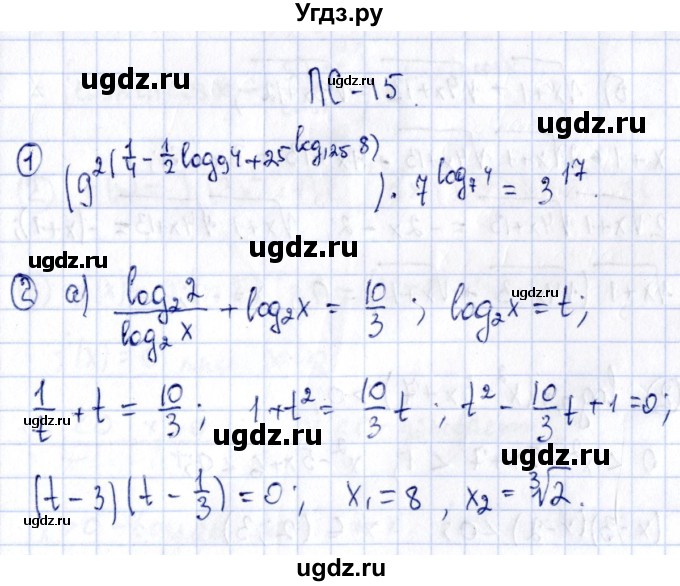 Угдз.ру
ugdz.ru ugdz.ru ugdz.ru
ПС-15.
① (9^{2(1/4 - 1/2 log_9 4 + 25^{log_{125} 8})}) · 7^{log_7 4} = 3^{17}.
ugdz.ru ugdz.ru
② а) log_2 2 / log_2 x + log_2 x = 10/3 ; log_2 x = t;
ugdz.ru
1/t + t = 10/3 ; 1 + t^2 = 10/3 t ; t^2 - 10/3 t + 1 = 0;
ugdz.ru ugdz.ru
(t - 3)(t - 1/3) = 0; x_1 = 8 , x_2 = ∛2.
ugdz.ru ugdz.ru
ugdz.ru